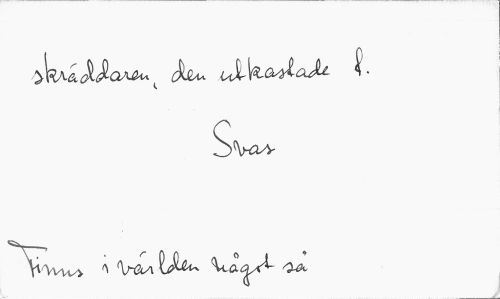 skräddaren, den utkastade t.
Svas
Finns i världen något så